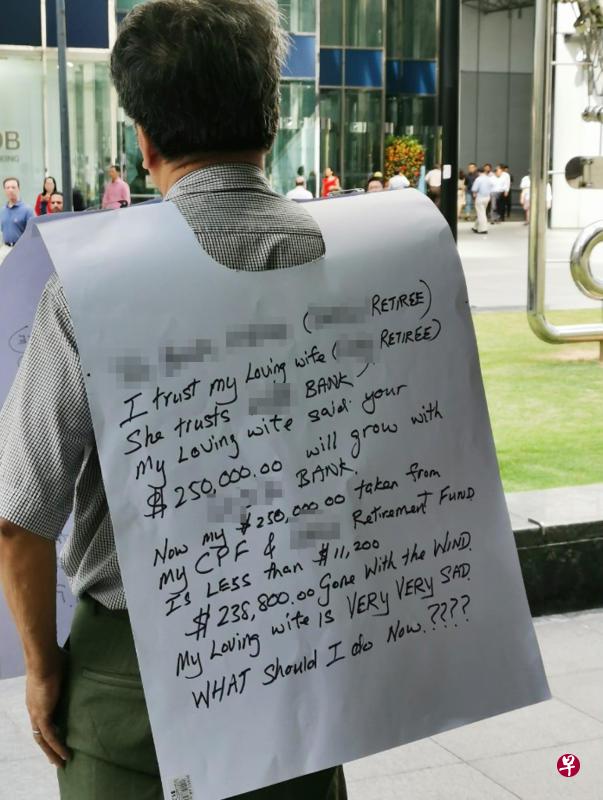 OB
KING
( RETIREE)
I trust my Loving wife ( RETIREE)
She trusts BANK.
My Loving wife said your
$250,000.00 will grow with
BANK.
Now my $250,000.00 taken from
My CPF & Retirement FUND
Is LESS than $11,200
$238,800.00 Gone With the WIND.
My Loving wife IS VERY VERY SAD
WHAT Should I do Now.????
早